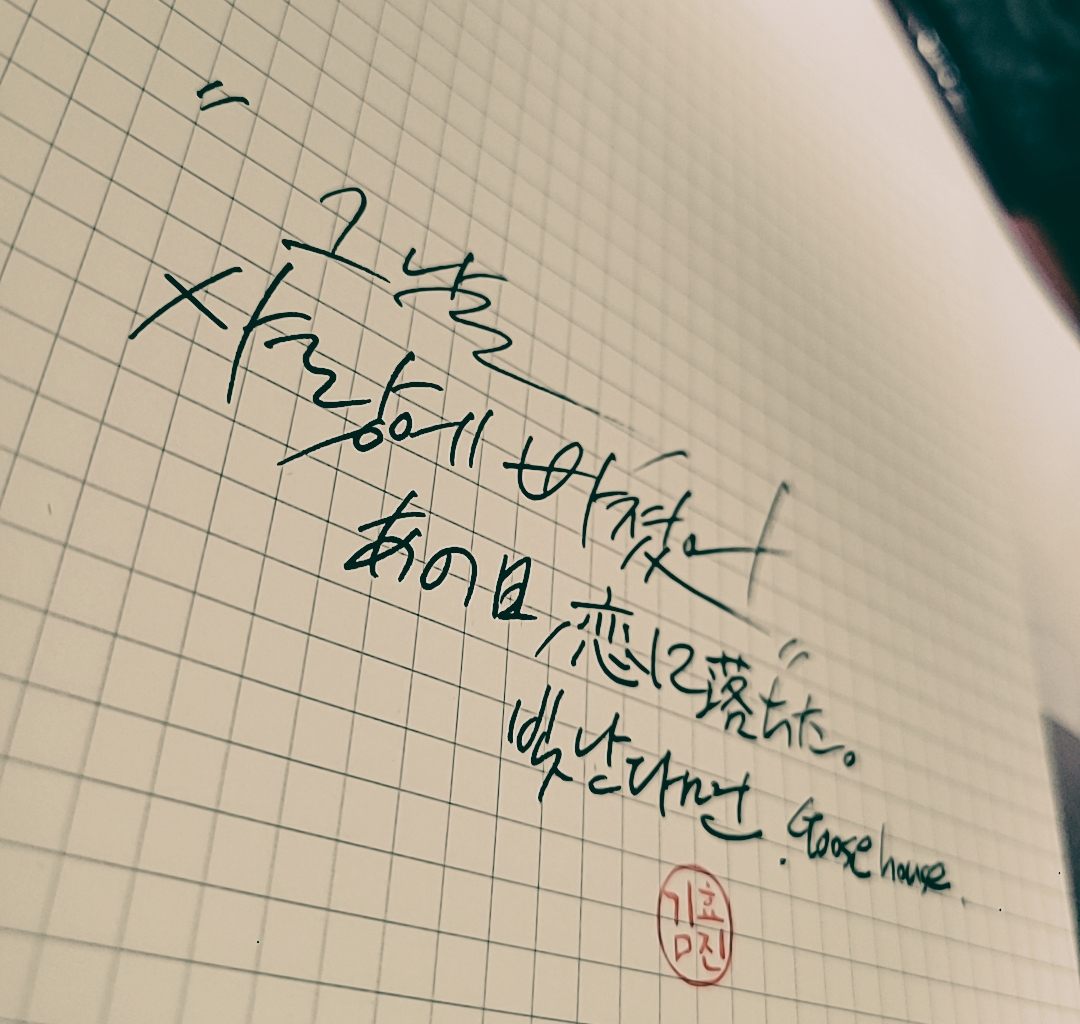 "그날
사랑에 빠졌어"
あの日, 恋に落ちた。
빛난다면. Goose house.
김효진